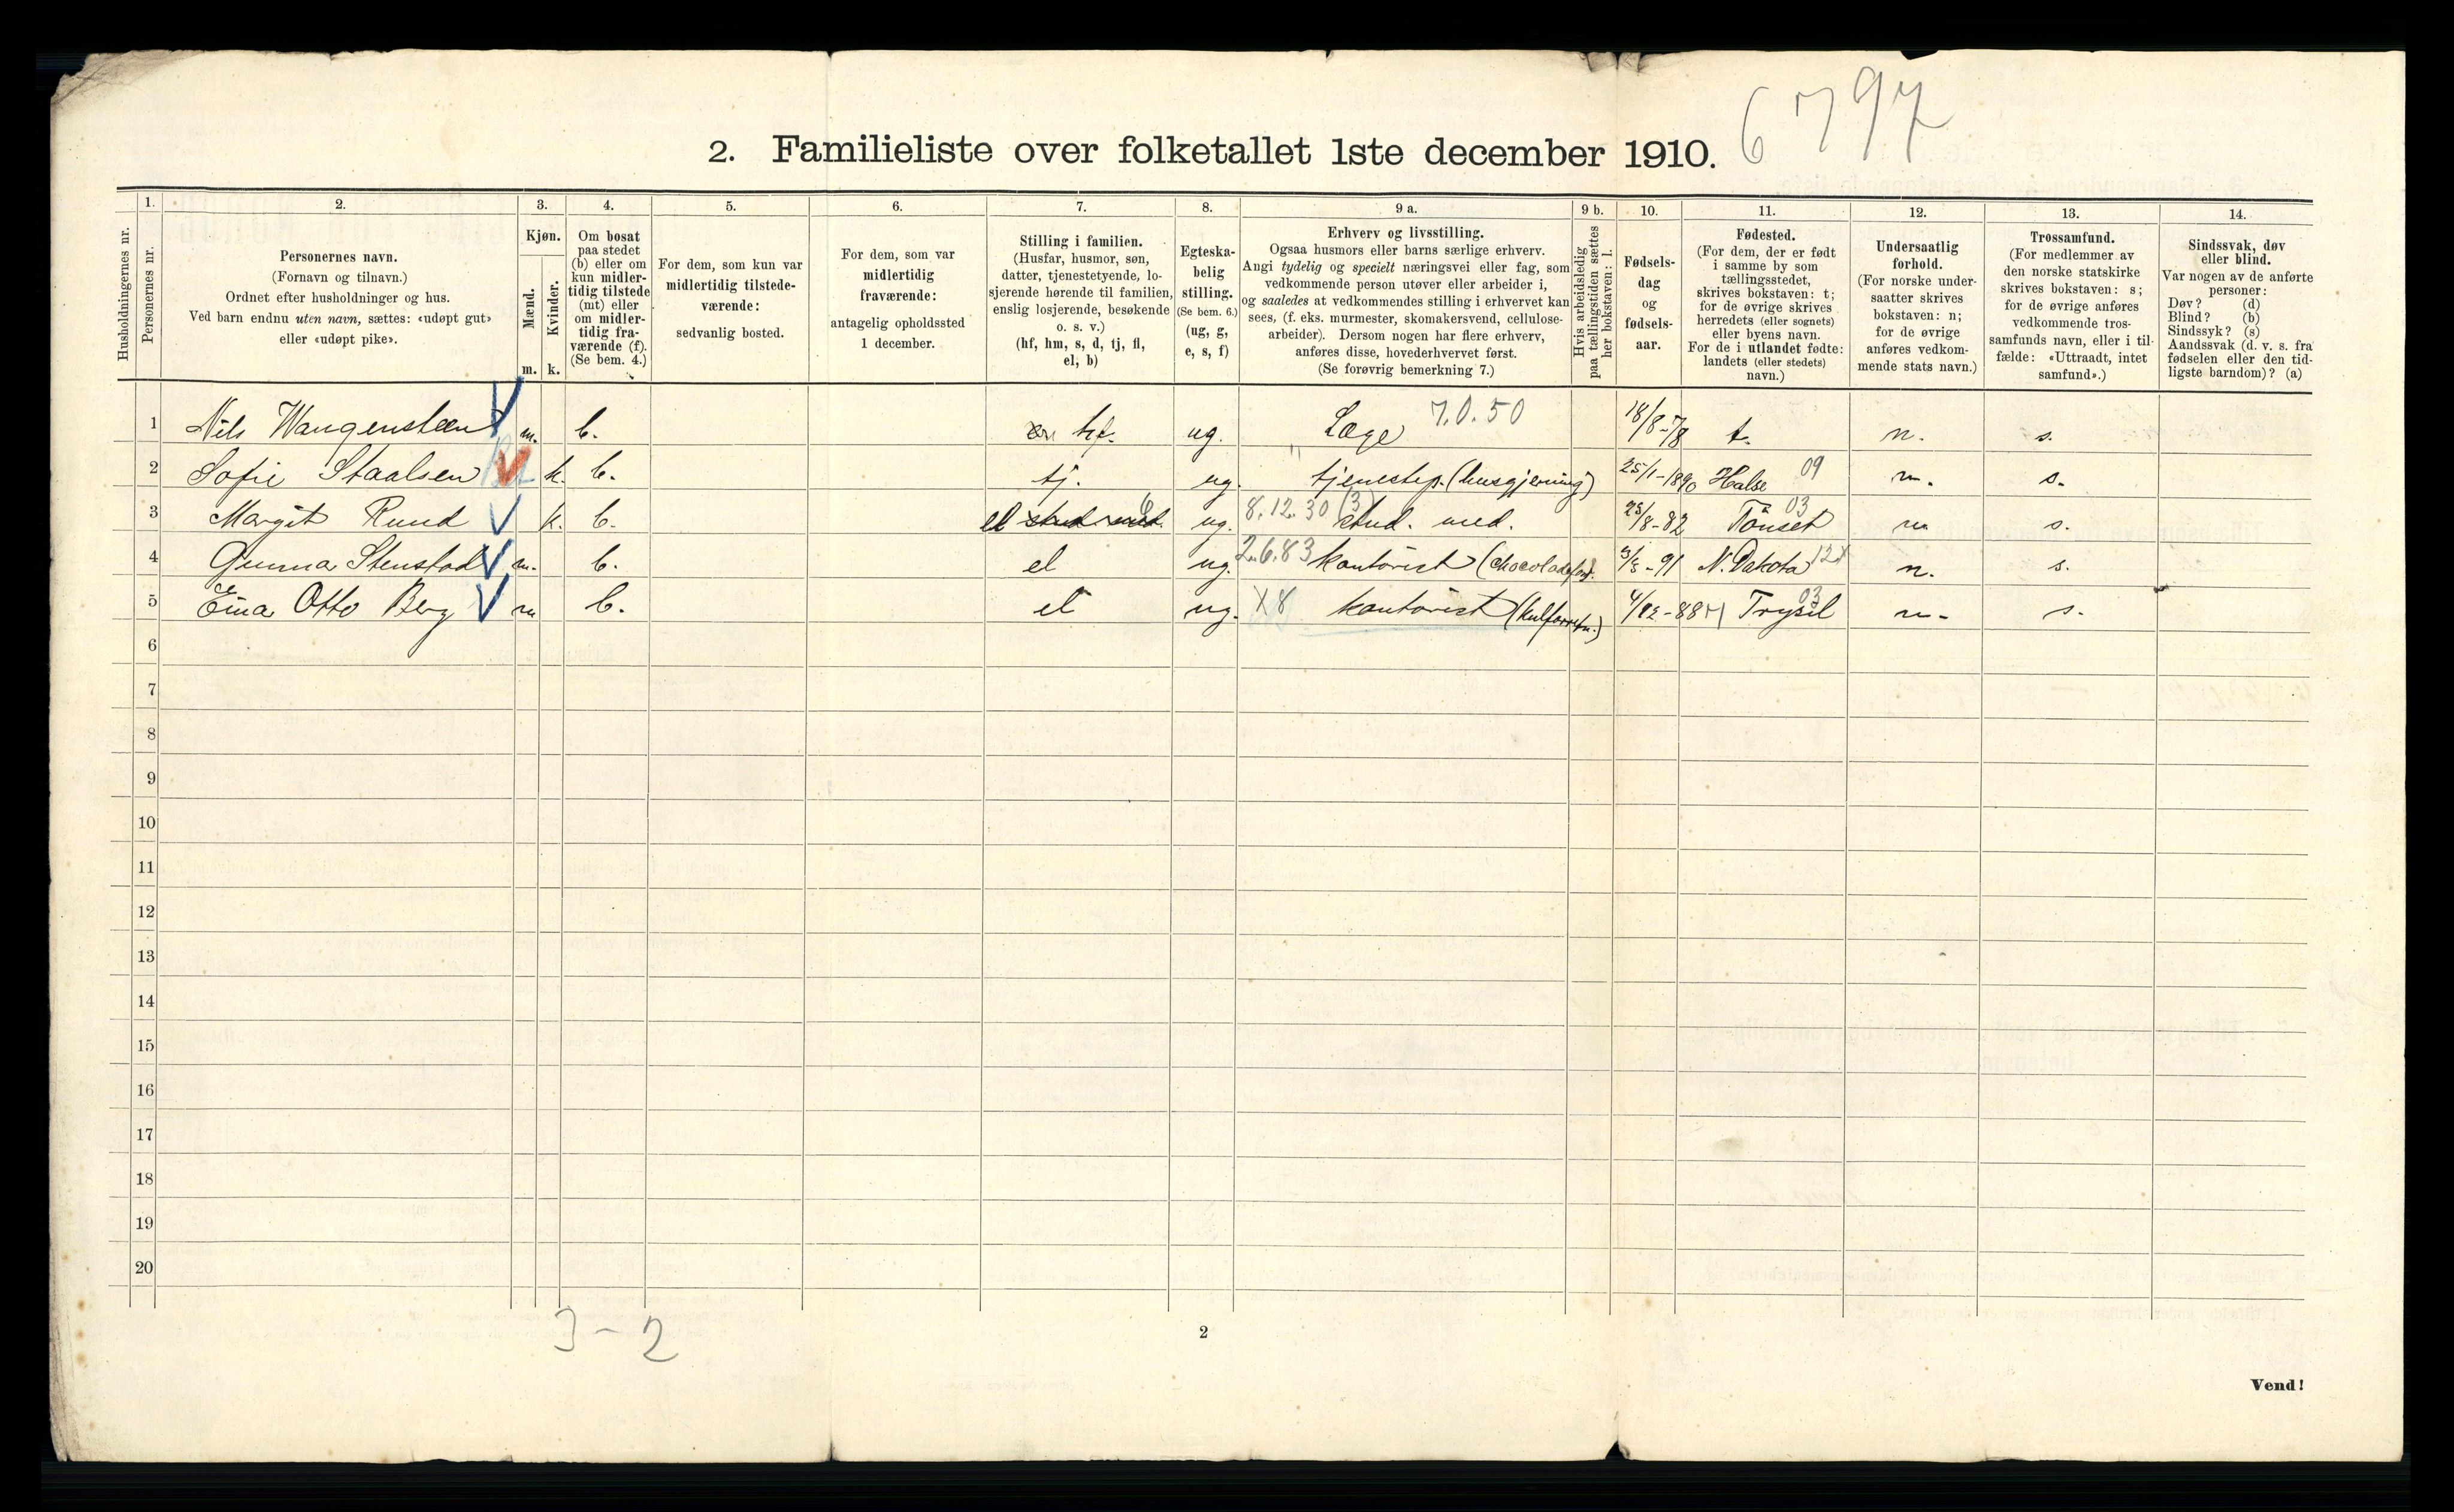 6797
2. Familieliste over folketallet 1ste december 1910.
Husholdningernes nr.
1. Personernes nr.
2.
Personernes navn.
(Fornavn og tilnavn.)
Ordnet efter husholdninger og hus.
Ved barn endnu uten navn, sættes: «udøpt gut»
eller «udøpt pike».
3.
Kjøn.
Mænd. m.
Kvinder. k.
4.
Om bosat
paa stedet
(b) eller om
kun midler-
tidig tilstede
(mt) eller
om midler-
tidig fra-
værende (f).
(Se bem. 4.)
5.
For dem, som kun var
midlertidig tilstede-
værende:
sedvanlig bosted.
6.
For dem, som var
midlertidig
fraværende:
antagelig opholdssted
1 december.
7.
Stilling i familien.
(Husfar, husmor, søn,
datter, tjenestetyende, lo-
sjerende hørende til familien,
enslig losjerende, besøkende
o. s. v.)
(hf, hm, s, d, tj, fl,
el, b)
8.
Egteska-
belig
stilling.
(Se bem. 6.)
(ug, g,
e, s, f)
9 a.
Erhverv og livsstilling.
Ogsaa husmors eller barns særlige erhverv.
Angi tydelig og specielt næringsvei eller fag, som
vedkommende person utøver eller arbeider i,
og saaledes at vedkommendes stilling i erhvervet kan
sees, (f. eks. murmester, skomakersvend, cellulose-
arbeider). Dersom nogen har flere erhverv,
anføres disse, hovederhvervet først.
(Se forøvrig bemerkning 7.)
9 b.
Hvis arbeidsledig
paa tællingstiden sættes
her bokstaven: l.
10.
Fødsels-
dag
og
fødsels-
aar.
11.
Fødested.
(For dem, der er født
i samme by som
tællingsstedet,
skrives bokstaven: t;
for de øvrige skrives
herredets (eller sognets)
eller byens navn.
For de i utlandet fødte:
landets (eller stedets)
navn.)
12.
Undersaatlig
forhold.
(For norske under-
saatter skrives
bokstaven: n;
for de øvrige
anføres vedkom-
mende stats navn.)
13.
Trossamfund.
(For medlemmer av
den norske statskirke
skrives bokstaven: s;
for de øvrige anføres
vedkommende tros-
samfunds navn, eller i til-
fælde: «Uttraadt, intet
samfund».)
14.
Sindssvak, døv
eller blind.
Var nogen av de anførte
personer:
Døv? (d)
Blind? (b)
Sindssyk? (s)
Aandssvak (d. v. s. fra
fødselen eller den tid-
ligste barndom)? (a)
1 Nils Wangensteen m. b. hf. ug. Læge 7.0.50 18/8-78 t. n. s.
2 Sofie Staalsen k. b. tj. ug. tjenestep. (husgjerning) 25/1-1890 Halse 09 n. s.
3 Margit Ruud k. b. el stud. med. ug. 8.12.30 (3) stud. med. 23/8-82 Tönset 03 n s.
4 Gunnar Stenstad m. b. el ug. 2.6.83 kontorist (chocoladefab). 3/5-91 N. Dakota 12x n. s.
5 Einar Otto Berg m b. el ug. X8 kontorist (kulforretn.) 4/12-88 Trysil 03 n. s.
6
7
8
9
10
11
12
13
14
15
16
17
18
19
20
3-2
2
Vend!